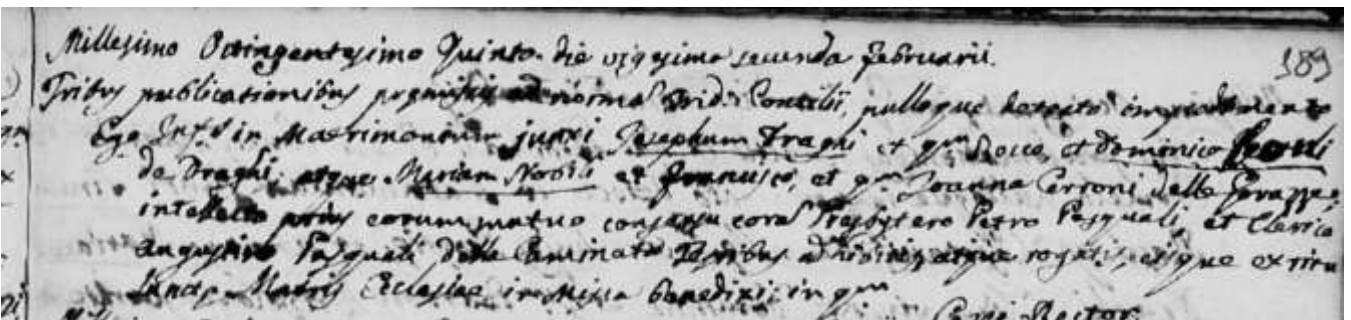 Millesimo Octingentesimo Quinto die vigesima secunda Februarii. 189
Tribus publicationibus premissis ad norma Trid: Concilii, nulloque detecto impedimento
Ego Infs in Matrimonium junxi Josephum Draghi et qm Rocco, et Dominica
de Draghi, atque Mariam Nobili ex Francisco, et qm Joanna Cerroni delle
intellecto prius eorum mutuo consensu cora Presbytero Petro Pasquali, et Clerico
Augustino Pasquali della Caminata Testibus adhibitis atque rogatis, eisque ex ritu
Sancte Matris Ecclesiae in Missa benedixi: in qm
Rector.